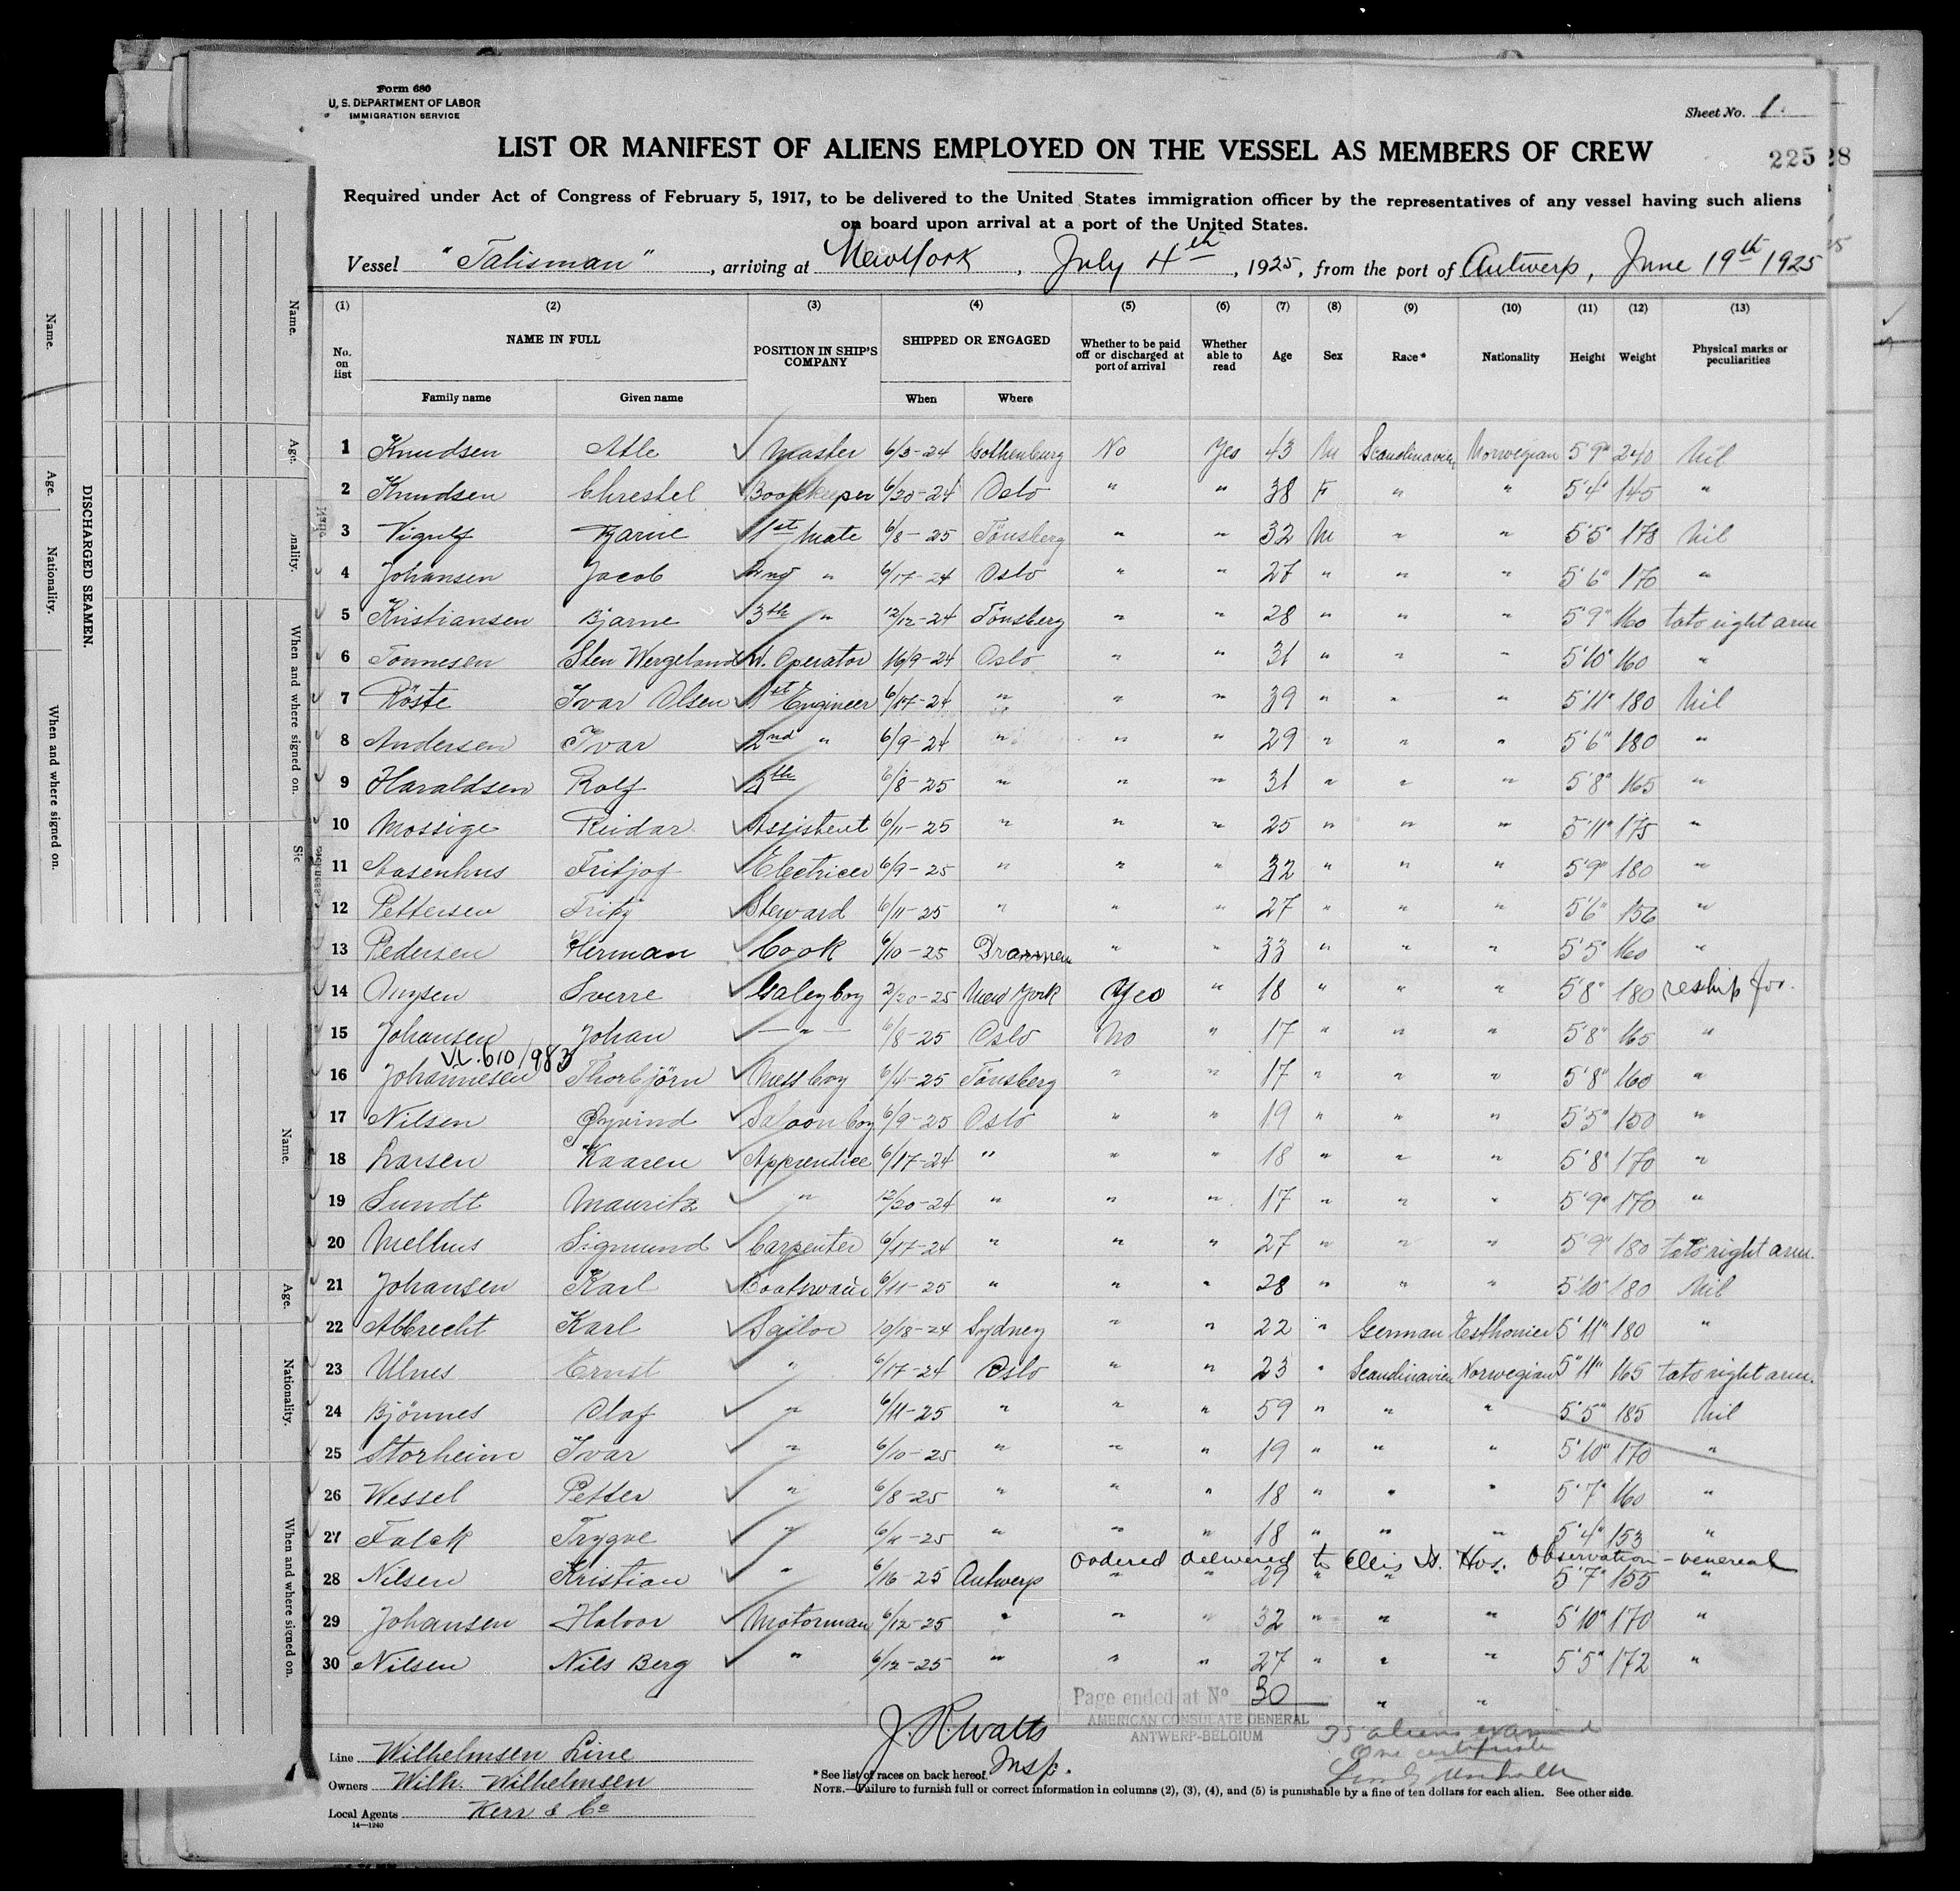 Form 680
U. S. DEPARTMENT OF LABOR
IMMIGRATION SERVICE
Sheet No. 1
LIST OR MANIFEST OF ALIENS EMPLOYED ON THE VESSEL AS MEMBERS OF CREW
225 28
Required under Act of Congress of February 5, 1917, to be delivered to the United States immigration officer by the representatives of any vessel having such aliens
on board upon arrival at a port of the United States.
Vessel "Talisman", arriving at New York, July 4th, 1925, from the port of Antwerp, June 19th 1925
(1) (2) (3) (4) (5) (6) (7) (8) (9) (10) (11) (12) (13)
No. on list NAME IN FULL Family name Given name POSITION IN SHIP'S COMPANY SHIPPED OR ENGAGED When Where Whether to be paid off or discharged at port of arrival Whether able to read Age Sex Race* Nationality Height Weight Physical marks or peculiarities
1 Knudsen Atle Master 6/3-24 Gothenburg No Yes 43 M Scandinavien Norwegian 5'9" 240 Nil
2 Knudsen Chrestel Bookkeeper 6/20-24 Oslo " " 38 F " " 5'4" 145 "
3 Bjarne 1st Mate 6/8-25 Tönsberg " " 32 M " " 5'5" 178 Nil
4 Johansen Jacob 2nd " 6/17-24 Oslo " " 27 " " " 5'6" 170 "
5 Kristiansen Bjarne 3th " 12/12-24 Tönsberg " " 28 " " " 5'9" 160 tato right arm
6 Tonnesen Sten Wergeland W. Operator 16/9-24 Oslo " " 31 " " " 5'10" 160 "
7 Röste Ivar Olsen 1st Engineer 6/17-24 " " " 39 " " " 5'11" 180 Nil
8 Andersen Ivar 2nd " 6/9-24 " " " 29 " " " 5'6" 180 "
9 Haraldsen Rolf 3th 6/8-25 " " " 31 " " " 5'8" 165 "
10 Mossige Reidar Assistent 6/11-25 " " " 25 " " " 5'11" 175 "
11 Aasenhus Fritjof Electricer 6/9-25 " " " 32 " " " 5'9" 180 "
12 Pettersen Fritz Steward 6/11-25 " " " 27 " " " 5'6" 156 "
13 Pedersen Herman Cook 6/10-25 Drammen " " 33 " " " 5'5" 160 "
14 Sverre Galeyboy 2/20-25 New York Yes " 18 " " " 5'8" 180 reship for.
15 Johansen Johan — " — 6/8-25 Oslo No " 17 " " " 5'8" 165 "
VL. 610/983
16 Johannesen Thorbjörn Mess boy 6/4-25 Tönsberg " " 17 " " " 5'8" 160 "
17 Nilsen Öyvind Saloon boy 6/9-25 Oslo " " 19 " " " 5'5" 150 "
18 Larsen Kaaren Apprentice 6/17-24 " " " 18 " " " 5'8" 170 "
19 Sundt Mauritz " 12/20-24 " " " 17 " " " 5'9" 170 "
20 Melhus Sigmund Carpenter 6/17-24 " " " 27 " " " 5'9" 180 tato right arm.
21 Johansen Karl Boatswain 6/11-25 " " " 28 " " " 5'10" 180 Nil
22 Albrecht Karl Sailor 10/18-24 Sydney " " 22 " German Esthonier 5'11" 180 "
23 Ulnes Ernst " 6/17-24 Oslo " " 23 " Scandinavien Norwegian 5'11" 165 tato right arm.
24 Bjönnes Olaf " 6/11-25 " " " 59 " " " 5'5" 185 Nil
25 Storheim Ivar " 6/10-25 " " " 19 " " " 5'10" 170 "
26 Wessel Petter " 6/8-25 " " " 18 " " " 5'7" 160 "
27 Falck Trygve " 6/11-25 " " " 18 " " " 5'4" 153 "
Ordered delivered to Ellis Is. Hos. Observation - venereal
28 Nilsen Kristian " 6/16-25 Antwerp " " 29 " " " 5'7" 155 "
29 Johansen Halvor Motorman 6/12-25 " " " 32 " " " 5'10" 170 "
30 Nilsen Nils Berg " 6/12-25 " " " 27 " " " 5'5" 172 "
Page ended at No 30 " "
AMERICAN CONSULATE GENERAL
ANTWERP-BELGIUM
35 aliens examined
One certificate
J. R. Watts
Insp.
Line Wilhelmsen Line
Owners Wilh. Wilhelmsen
Local Agents Kerr & Co
14—1240
* See list of races on back hereof.
NOTE.—Failure to furnish full or correct information in columns (2), (3), (4), and (5) is punishable by a fine of ten dollars for each alien. See other side.
DISCHARGED SEAMEN.
Name.
Age.
Nationality.
When and where signed on.
Name.
Age.
nality.
When and where signed on.
Sic
Name.
Age.
Nationality.
When and where signed on.